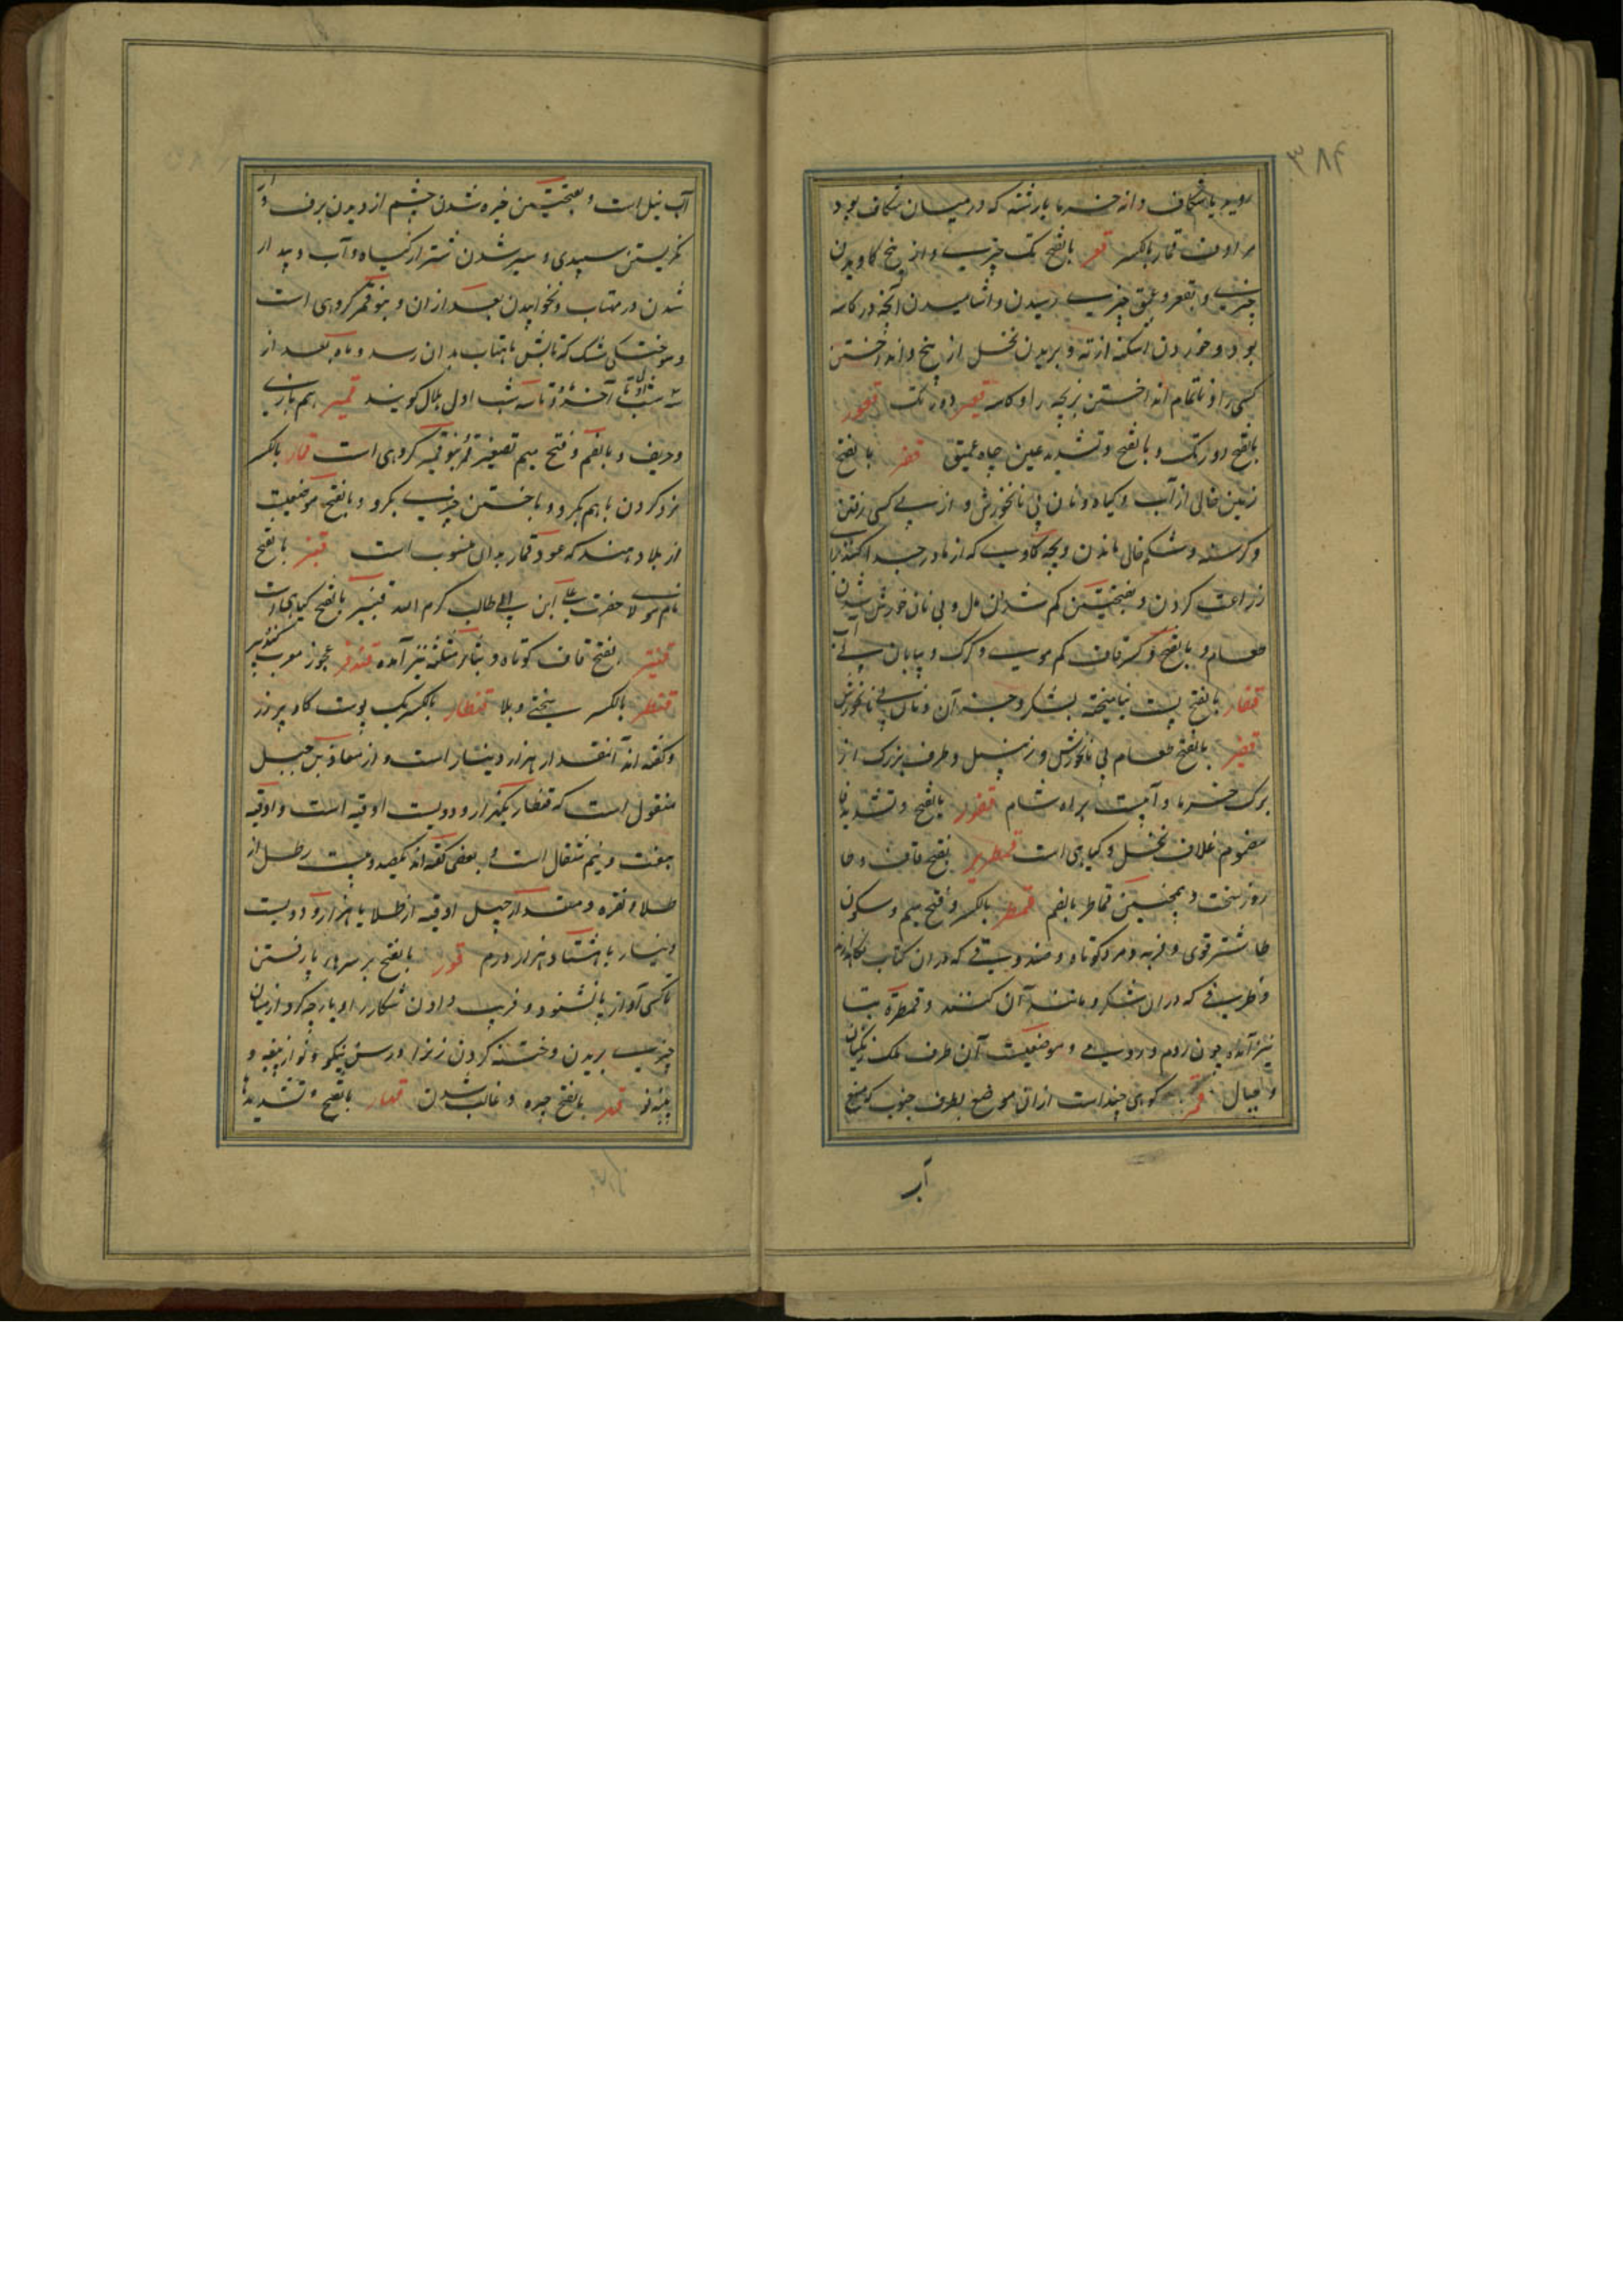 ۳۸۴
روید یا شکاف دانه خرما یا رشته که در میان شکاف بود
بالکسر قعر بالفتح تک چیزی و از بیخ کاویدن
چیزی و بقعر و عمق چیزی رسیدن و آشامیدن آنچه در کاسه
بود و خوردن اشکنه از ته و بریدن نخل از بیخ و انداختن
کسی را و ناتمام انداختن بز بچه را و کاسه قعیر دور تک قعور
بالفتح دور تک و بالفتح و تشدید عین چاه عمیق قفر بالفتح
زمین خالی از آب و گیاه و نان بی نانخورش و از پی کسی رفتن
و گرسنه و شکم خالی ماندن و بچه گاوی که از مادر جدا کنند برای
زراعت کردن و بفتحتین کم شدن مال و بی نان خورش شدن
طعام و بالفتح و کسر قاف کم موی و گرگ و بیابان بی آب
قفار بالفتح پست نیامیخته بشکر و جز آن و نان بی نانخورش
قفیر بالفتح طعام بی نانخورش و زنبیل و ظرف بزرگ از
برگ خرما و آبیست براه شام قفور بالفتح و تشدید فا
مضموم غلاف نخل و گیاهی است قمطریر بفتح قاف و طا
روز سخت و همچنین قماطر بالضم قمطر بالکسر و فتح میم و سکون
طا شتر قوی و فربه و مرد کوتاه و صندوقی که در آن کتاب نگاه دارند
و ظرفی که در آن شکر و مانند آن کنند و قمطره بتا
نیز آمده چون روم و رومی و موضعیست آن طرف ملک زنگیان
و جبال قمر کوهی چند است از آن موضع بطرف جنوب که منبع
آب
آب نیل است و بفتحتین خیره شدن چشم از دیدن برف و از
نگریستن سپیدی و سیر شدن شتر از گیاه و آب و بیدار
شدن در مهتاب و نخوابیدن بعد از آن و بنو قمر گروهی است
و سوختگی مشک که تابش ماهتاب بدان رسد و ماه بعد از
سه شب اول تا آخر و تا سه شب اول هلال گویند قمیر هم بازی
و حریف و بالضم و فتح میم تصغیر قمر بنو قمیر گروهی است قمار بالکسر
نرد کردن با هم بگرو و باختن چیزی بگرو و بالفتح موضعیست
از بلاد هند که عود قمار بدان منسوب است قنبر بالفتح
نام مولای حضرت علی ابن ابی طالب کرم الله قنیبر بالفتح گیاهی است
بفتح قاف کوتاه و بثای مثلثه نیز آمده قندفر عجوز معرب گندپیر
قنطر بالکسر سختی و بلا قنطار بالکسر یک پوست گاو پر زر
و گفته اند آنقدر از هزار دینار است و از معاذ بن جبل
منقول است که قنطار یکهزار و دویست اوقیه است و اوقیه
هفت و نیم مثقال است و بعضی گفته اند یکصد و بیست رطل از
طلا و نقره و مقدار چهل اوقیه از طلا یا هزار و دویست
دینار یا هشتاد هزار درم قور بالفتح بر سر های پا رفتن
تا کسی آواز پا نشنود و فریب دادن شکار را و پارچه گرد از میان
چیزی بریدن و ختنه کردن زن را و رسن نیکو و نو از پنبه و
پنبه نو قهر بالفتح چیره و غالب شدن قهار بالفتح و تشدید ها